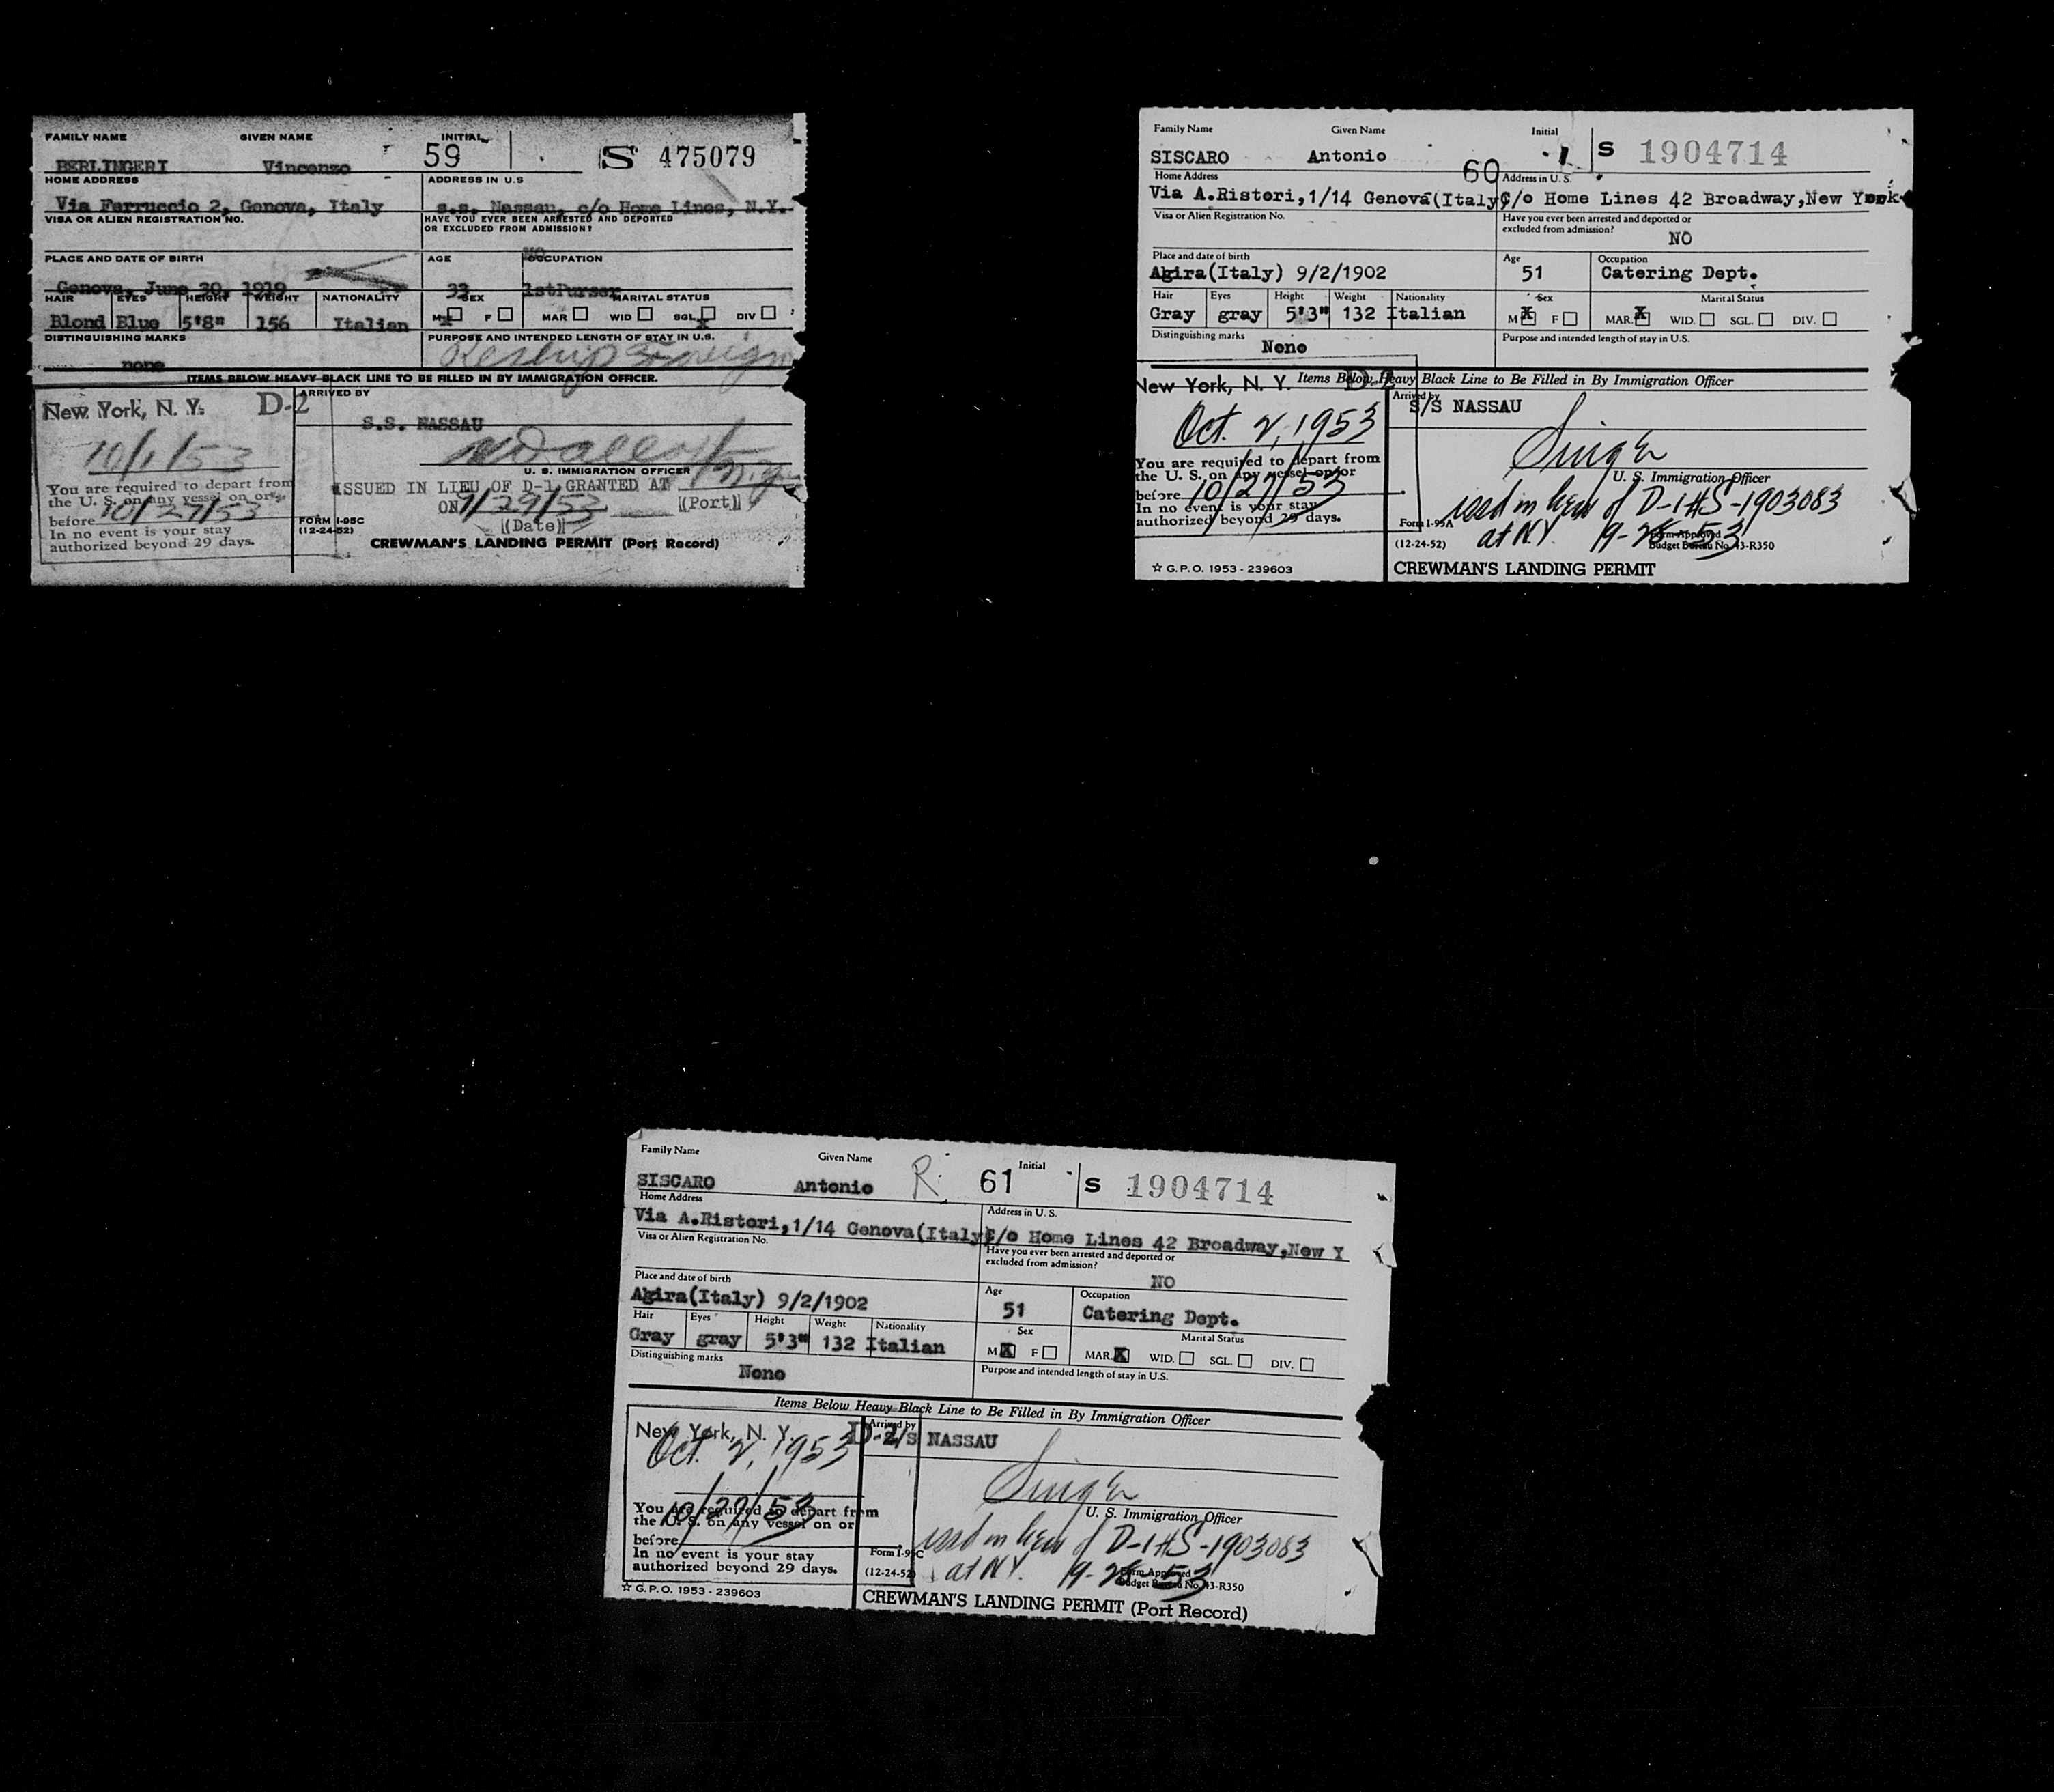 FAMILY NAME GIVEN NAME INITIAL
BERLINGERI Vincenzo 59 S 475079
HOME ADDRESS ADDRESS IN U.S
Via Ferruccio 2, Genova, Italy s.s. Nassau, c/o Home Lines, N.Y.
VISA OR ALIEN REGISTRATION NO. HAVE YOU EVER BEEN ARRESTED AND DEPORTED
OR EXCLUDED FROM ADMISSION?
NO
PLACE AND DATE OF BIRTH AGE OCCUPATION
Genova, June 30, 1919 33 1stPurser
HAIR EYES HEIGHT WEIGHT NATIONALITY SEX MARITAL STATUS
Blond Blue 5'8" 156 Italian M X F MAR WID SGL X DIV
DISTINGUISHING MARKS PURPOSE AND INTENDED LENGTH OF STAY IN U.S.
none Reship Foreign
ITEMS BELOW HEAVY BLACK LINE TO BE FILLED IN BY IMMIGRATION OFFICER.
New York, N. Y. D-2 ARRIVED BY
S.S. NASSAU
10/1/53
U. S. IMMIGRATION OFFICER
You are required to depart from
the U. S. on any vessel on or
before 10/27/53
In no event is your stay
authorized beyond 29 days.
ISSUED IN LIEU OF D-1 GRANTED AT N.Y.
ON 9/29/53 (Port)
(Date)
FORM I-95C
(12-24-52)
CREWMAN'S LANDING PERMIT (Port Record)
Family Name Given Name Initial
SISCARO Antonio 60 S 1904714
Home Address Address in U. S.
Via A.Ristori,1/14 Genova(Italy) C/o Home Lines 42 Broadway,New York
Visa or Alien Registration No. Have you ever been arrested and deported or
excluded from admission?
NO
Place and date of birth Age Occupation
Agira(Italy) 9/2/1902 51 Catering Dept.
Hair Eyes Height Weight Nationality Sex Marital Status
Gray gray 5'3" 132 Italian M X F MAR. X WID. SGL. DIV.
Distinguishing marks Purpose and intended length of stay in U.S.
None
Items Below Heavy Black Line to Be Filled in By Immigration Officer
New York, N. Y. D-2 Arrived by
S/S NASSAU
Oct. 2, 1953
Singer
U. S. Immigration Officer
You are required to depart from
the U. S. on any vessel on or
before 10/27/53
In no event is your stay
authorized beyond 29 days.
issd in lieu of D-1 #S-1903083
at N.Y. 9-28-53
Form I-95A
(12-24-52)
Form Approved
Budget Bureau No. 43-R350
☆ G.P.O. 1953 - 239603
CREWMAN'S LANDING PERMIT
Family Name Given Name Initial
SISCARO Antonio R. 61 S 1904714
Home Address Address in U. S.
Via A.Ristori,1/14 Genova(Italy) C/o Home Lines 42 Broadway,New Y
Visa or Alien Registration No. Have you ever been arrested and deported or
excluded from admission?
NO
Place and date of birth Age Occupation
Agira(Italy) 9/2/1902 51 Catering Dept.
Hair Eyes Height Weight Nationality Sex Marital Status
Gray gray 5'3" 132 Italian M X F MAR. X WID. SGL. DIV.
Distinguishing marks Purpose and intended length of stay in U.S.
None
Items Below Heavy Black Line to Be Filled in By Immigration Officer
New York, N. Y. D-2 Arrived by
S/S NASSAU
Oct. 2, 1953
Singer
U. S. Immigration Officer
10/27/53
You are required to depart from
the U. S. on any vessel on or
before
In no event is your stay
authorized beyond 29 days.
issd in lieu of D-1 #S-1903083
at N.Y. 9-28-53
Form I-95C
(12-24-52)
Form Approved
Budget Bureau No. 43-R350
☆ G.P.O. 1953 - 239603
CREWMAN'S LANDING PERMIT (Port Record)